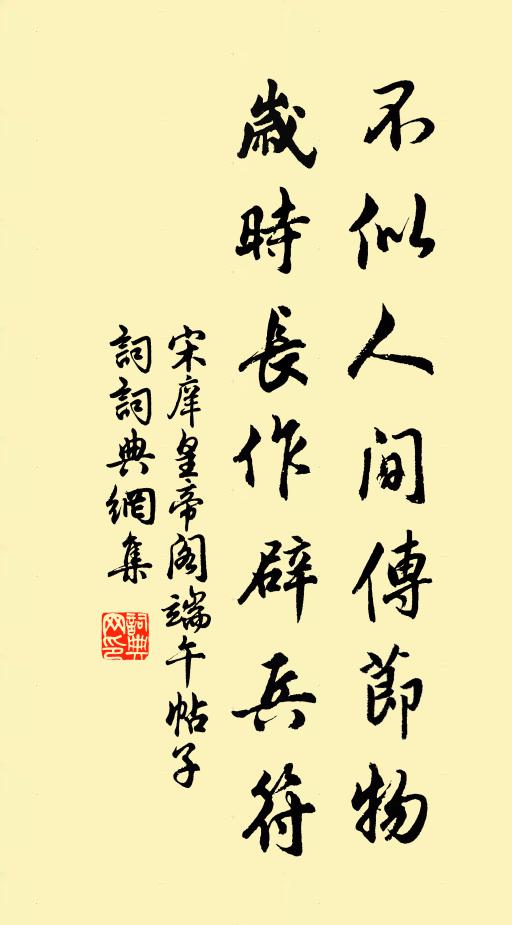 不似人間傳節物
歲時長作辟兵符
宋庠皇帝阁端午帖子
詞詞典網集
詞典网印